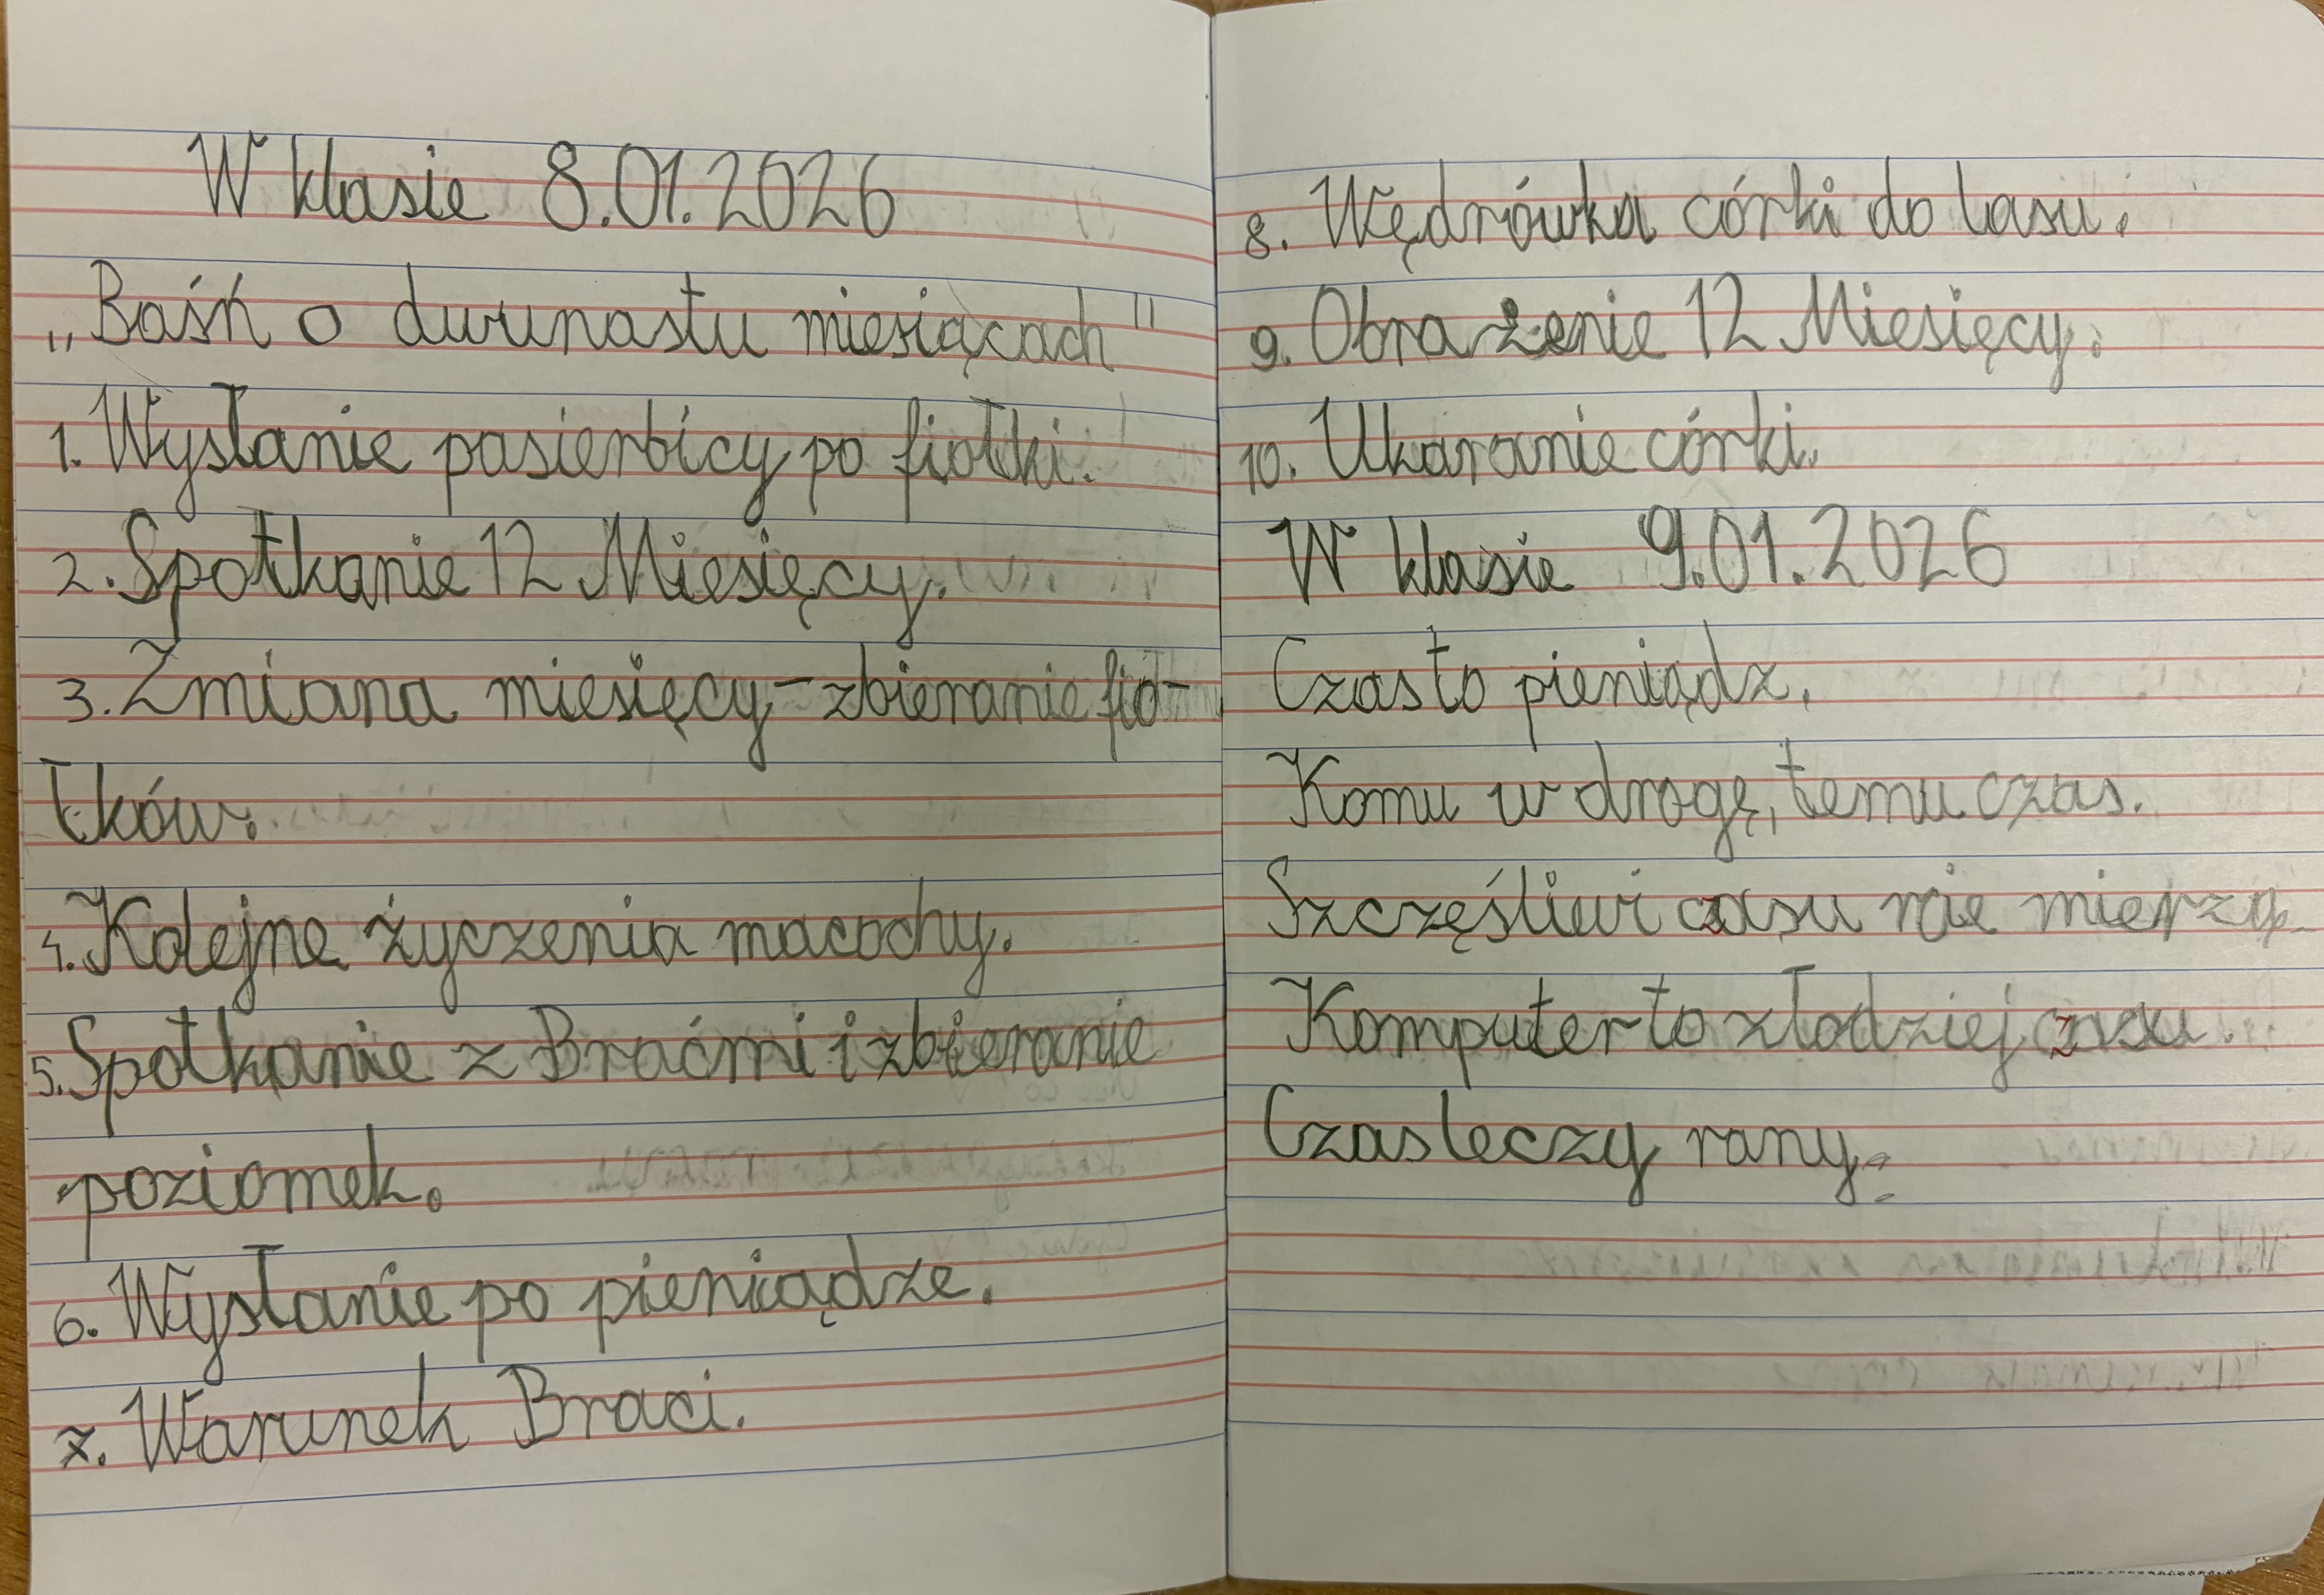 W klasie 8.01.2026
„Baśń o dwunastu miesiącach"
1. Wysłanie pasierbicy po fiołki.
2. Spotkanie 12 Miesięcy.
3. Zmiana miesięcy – zbieranie fio-
łków.
4. Kolejne życzenia macochy.
5. Spotkanie z Braćmi i zbieranie
poziomek.
6. Wysłanie po pieniądze.
7. Warunek Braci.
8. Wędrówka córki do lasu.
9. Obrażenie 12 Miesięcy.
10. Ukaranie córki.
W klasie 9.01.2026
Czas to pieniądz.
Komu w drogę, temu czas.
Szczęśliwi czasu nie mierzą.
Komputer to złodziej czasu.
Czas leczy rany.